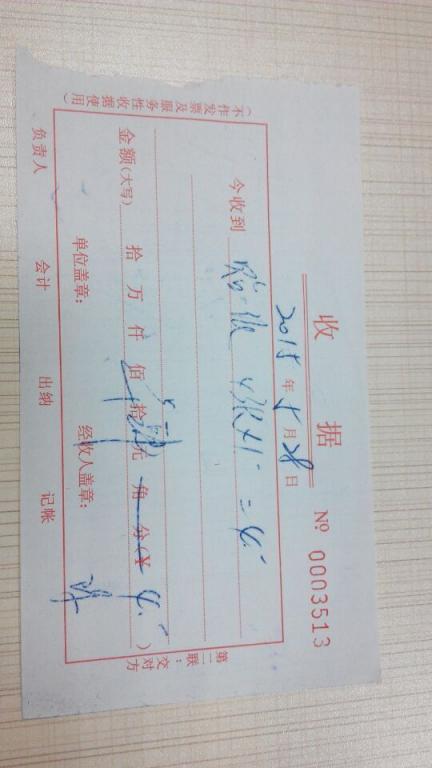 收 据 № 0003513
2015 年 5 月 28 日
今收到 4张×1=4.-
金额(大写) 拾 万 仟 佰 拾 元 角 分(¥ 4.- )
单位盖章: 经收人盖章:
负责人 会计 出纳 记帐
第二联:交对方
(不作发票及服务性收据使用)